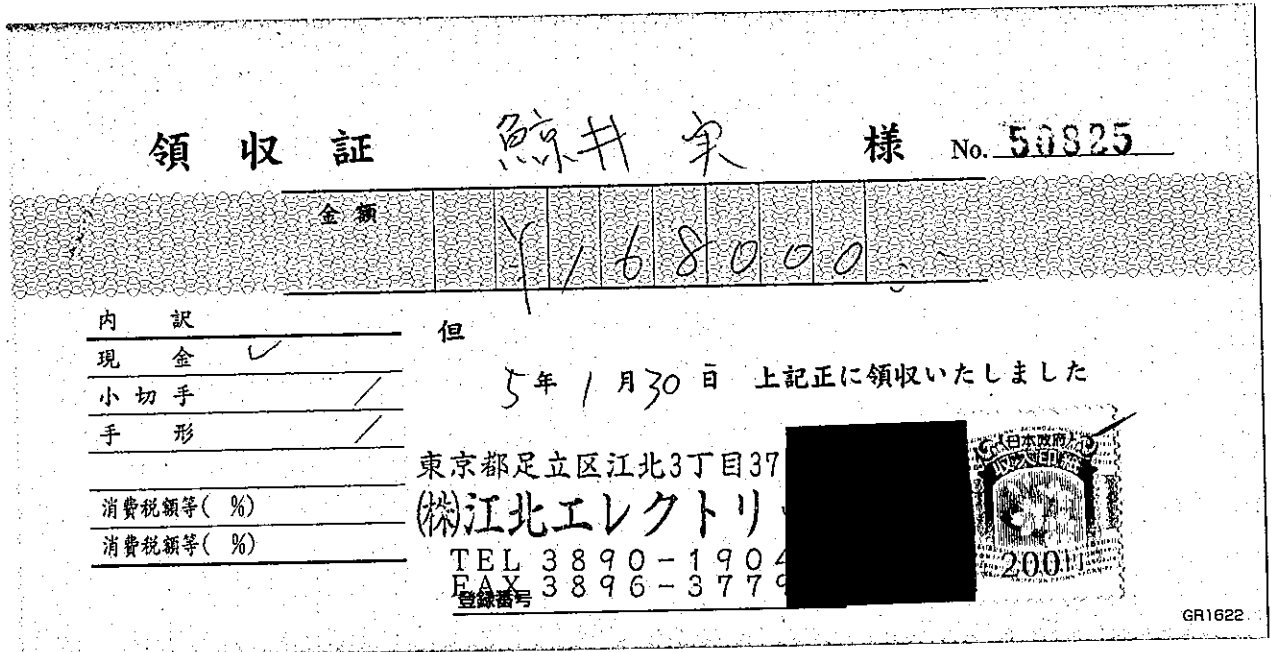 領収証 鯨井 実 様 No. 50825
金額 ¥168000.-
内訳
現金 ✓
小切手 /
手形 /
消費税額等( %)
消費税額等( %)
但
5年1月30日 上記正に領収いたしました
東京都足立区江北3丁目37
㈱江北エレクトリ
TEL 3890-1904
FAX 3896-3779
登録番号
日本政府
収入印紙
200円
GR1622